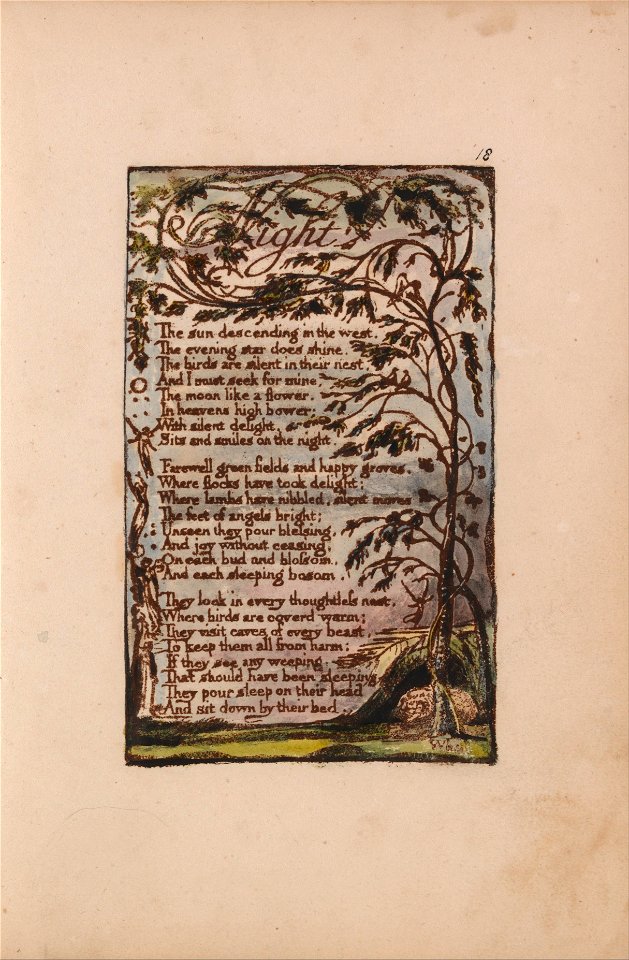 18
Night
The sun descending in the west.
The evening star does shine.
The birds are silent in their nest.
And I must seek for mine,
The moon like a flower.
In heavens high bower;
With silent delight,
Sits and smiles on the night.
Farewell green fields and happy groves,
Where flocks have took delight;
Where lambs have nibbled, silent moves
The feet of angels bright;
Unseen they pour blessing,
And joy without ceasing,
On each bud and blossom.
And each sleeping bosom.
They look in every thoughtless nest,
Where birds are coverd warm;
They visit caves of every beast,
To keep them all from harm:
If they see any weeping.
That should have been sleeping
They pour sleep on their head
And sit down by their bed